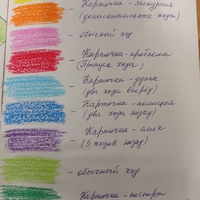 - Карточка - экскурсия
(дополнительные хода)
- обычный ход
- Карточка - проблема
(Пропуск хода)
- Карточка - удача
(два хода вперёд)
- Карточка - полиция
(два хода назад)
- Карточка -
(5 ходов назад)
- обычный ход
- Карточка - паспорт